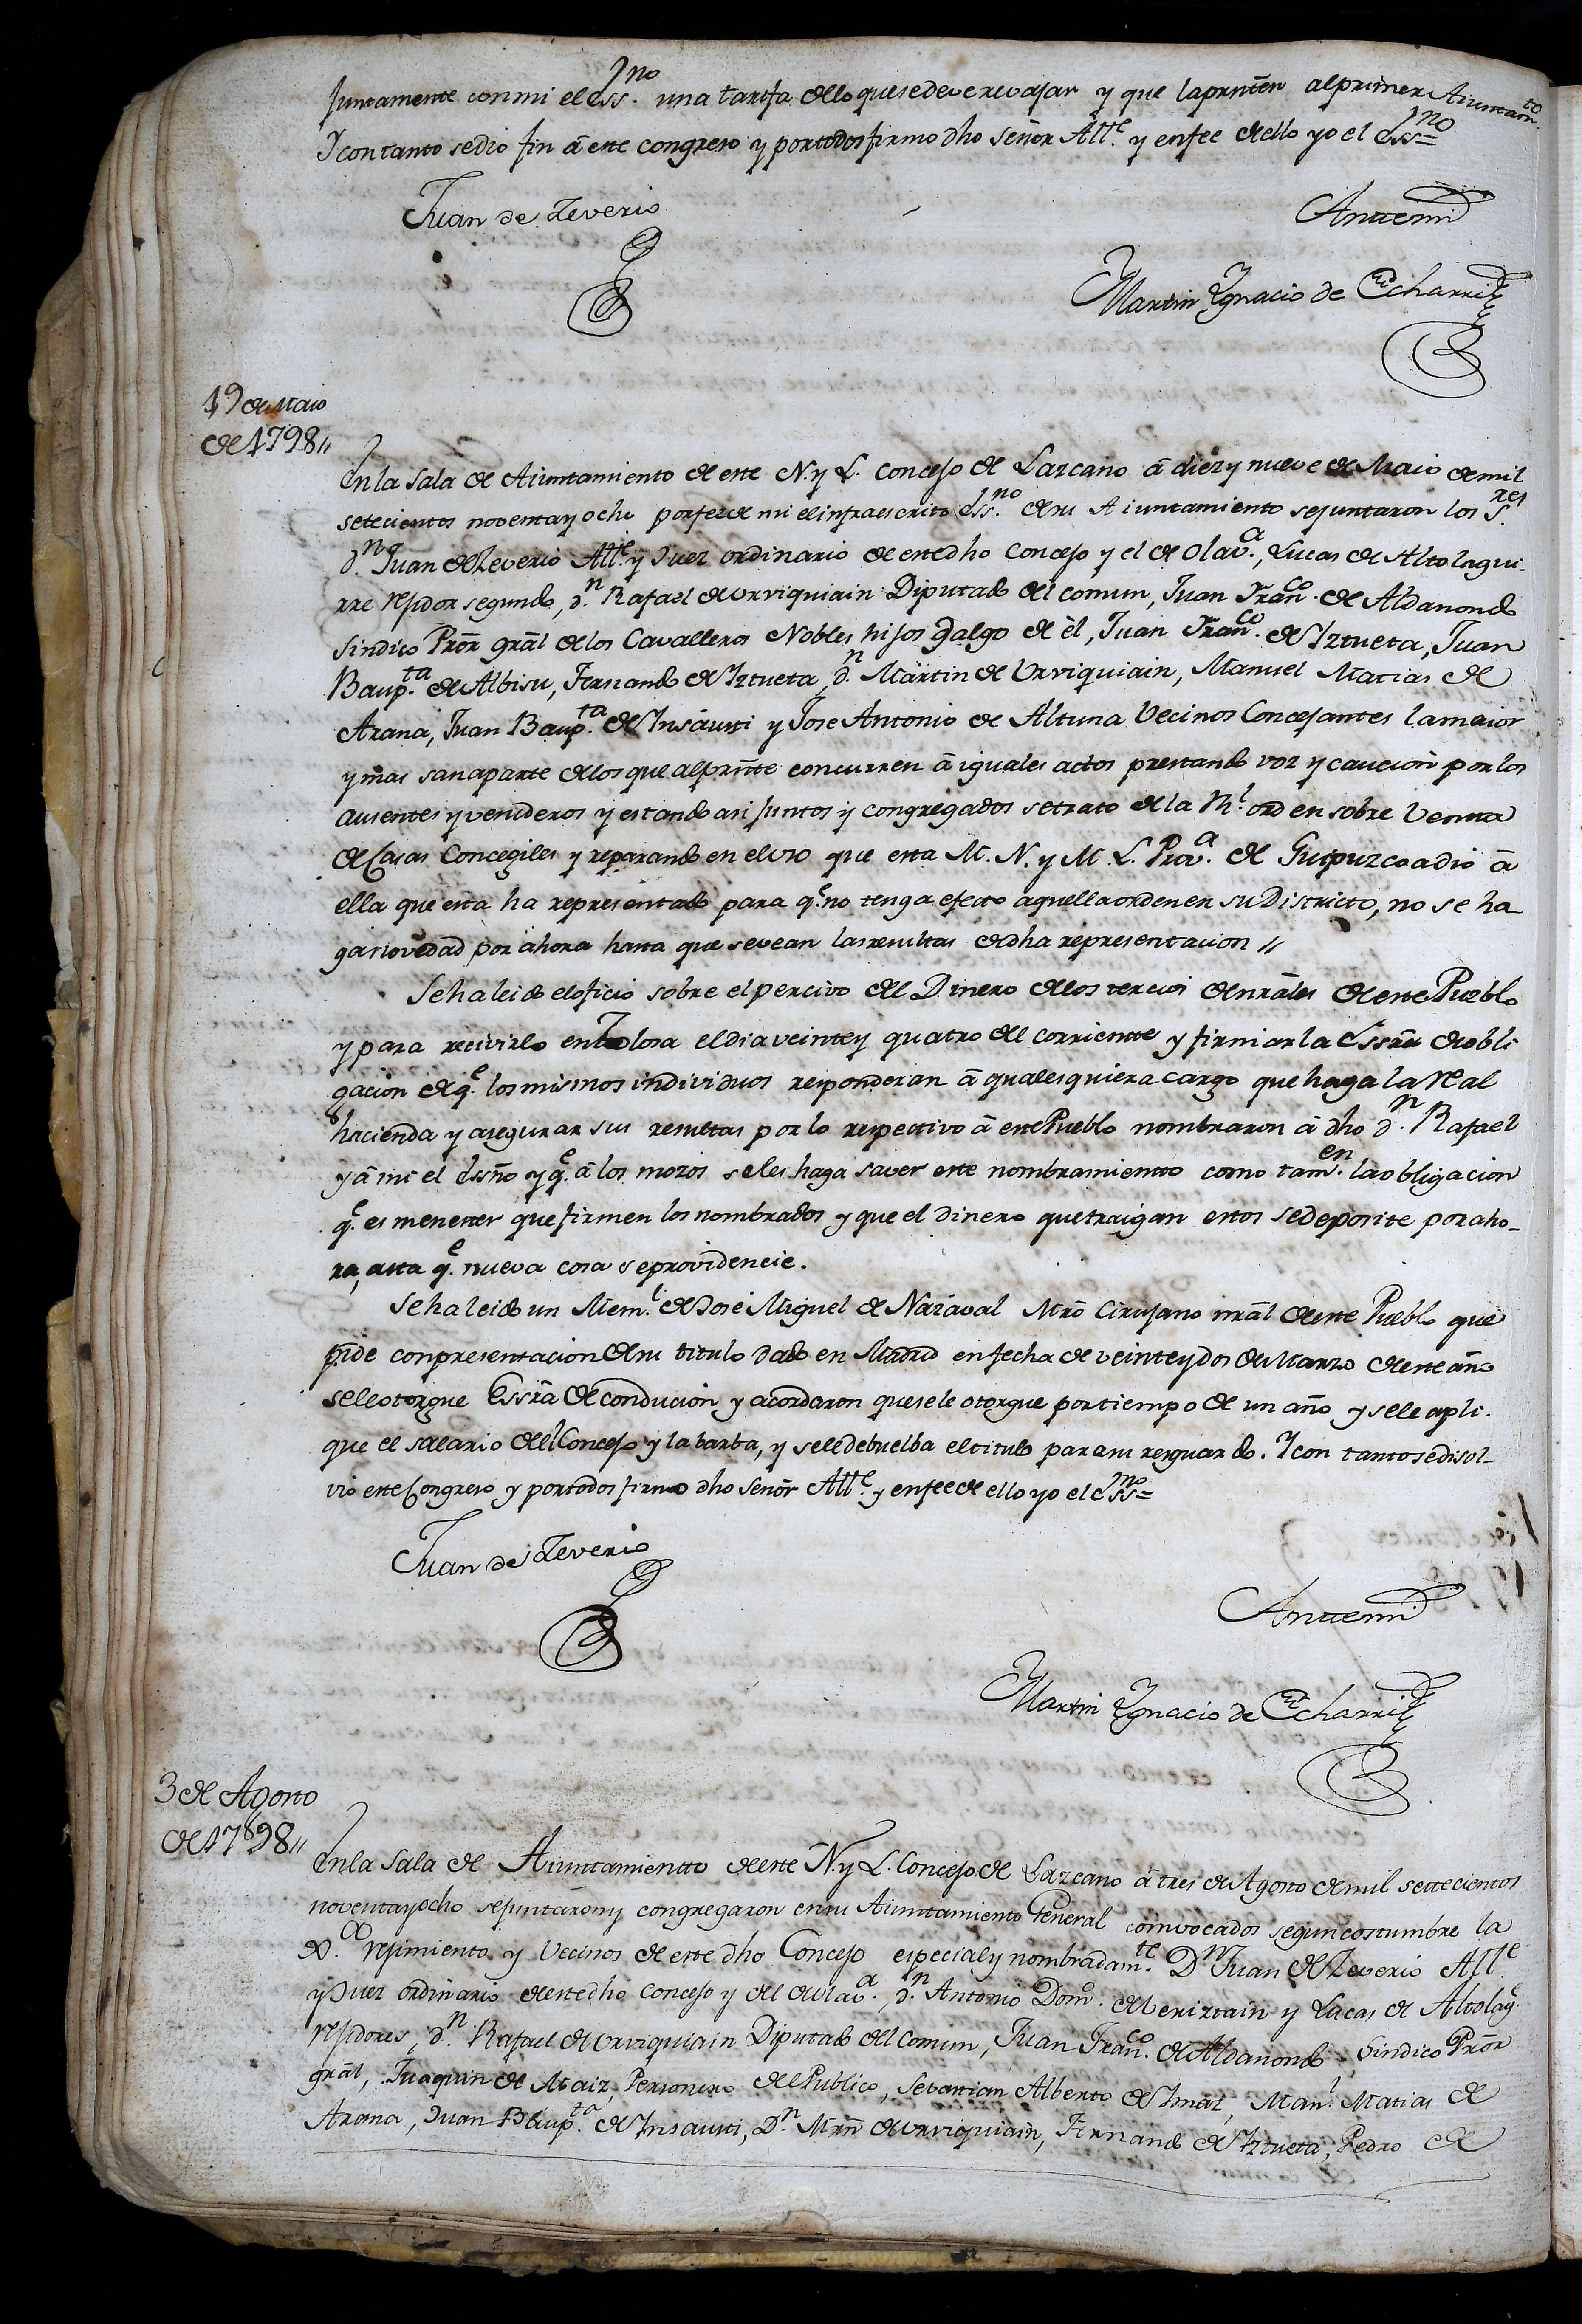 Juntamente con mi el Ess.no una tarifa de lo que se deve revajar y que la prnten al primer Aiuntam.to
Y con tanto se dio fin â este congreso y por todos firmo dho señor All.e y enfee de ello yo el Ess.no=
Juan de Zeverio
Antemi
Martin Ygnacio de Echarri
19 de Maio
de 1798 //
En la Sala de Aiuntamiento de este N. y L. Concejo de Lazcano â diez y nueve de Maio de mil
setecientos noventa y ocho por fee de mi el infraescrito Ess.no de su Aiuntamiento se juntaron los S.res
d.n Juan de Zeverio All.e y Juez ordinario de este dho Concejo y el de Olav.a, Lucas de Altolagui-
rre rejidor segundo, d.n Rafael de Urviquiain Diputado del comun, Juan Fran.co de Aldanondo
Sindico Prõr grãl de los Cavalleros Nobles hijos dalgo de êl, Juan Fran.co de Yztueta, Juan
Baup.ta de Albisu, Fernando de Yztueta, d.n Martin de Urviquiain, Manuel Matias de
Arana, Juan Baup.ta de Ynsausti y Jose Antonio de Altuna Vecinos Concejantes la maior
y mas sana parte de los que al prñte concurren â iguales actos prestando voz y caucion por los
ausentes y venideros y estando asi juntos y congregados se trato de la Rl. orden sobre Venta
de Casas Concegiles y reparando en el uso que esta M. N. y M. L. Prov.a de Guipuzcoa dio â
ella que esta ha representado para q.e no tenga efecto aquella orden en su Districto, no se ha-
ga novedad por ahora hasta que se vean las resultas de dha representacion //
Se ha leido el oficio sobre el percivo del Dinero de los tercios de nrãles de este Pueblo
y para recivirlo en Tolosa el dia veinte y quatro del corriente y firmar la Essrã de obli
gacion de q.e los mismos individuos responderan â qualesquiera cargo que haga la Real
hacienda y asegurar sus resultas por lo respectivo â este Pueblo nombraron â dho d.n Rafael
y â mi el Essño y q.e â los mozos se les haga saver este nombramiento como tam.en la obligacion
q.e es menester que firmen los nombrados y que el dinero que traigan estos se deposite por aho-
ra, asta q.e nueva cosa se providencie.
Se ha leido un Mem.l de José Miguel de Nazaval Mrõ Cirujano nrãl de este Pueblo que
pide con presentacion de su titulo dado en Madrid en fecha de veinte y dos de Marzo de este año
se le otorgue Essrã de conducion y acordaron que se le otorgue por tiempo de un año y se le apli-
que el salario del Concejo y la barba, y se le debuelba el titulo para su resguardo. Y con tanto se disol-
vio este Congreso y por todos firmo dho Señor All.e y enfee de ello yo el Ess.no=
Juan de Zeverio
Antemi
Martin Ygnacio de Echarri
3 de Agosto
de 1798 //
En la Sala de Aiuntamientto de este N. y L. Concejo de Lazcano â tres de Agosto de mil settecientos
noventa y ocho se juntaron y congregaron en su Aiuntamiento General convocados segun costumbre la
rejimiento y Vecinos de este dho Concejo especial y nombradam.te D.n Juan de Zeverio All.e
y Juez ordinario de este dho Concejo y del de Olav.a, d.n Antonio Dom.o de Beriztain y Lucas de Altolag.
rejidores, d.n Rafael de Urviquiain Diputado del Comun, Juan Fran.co de Aldanondo Sindico Prõr
grãl, Juaquin de Maiz Personero del Publico, Sevastian Alberto de Ymaz, Man.l Matias de
Arana, Juan Baup.ta de Ynsausti, D.n Mrñ de Urviquiain, Fernando de Yztueta, Pedro de